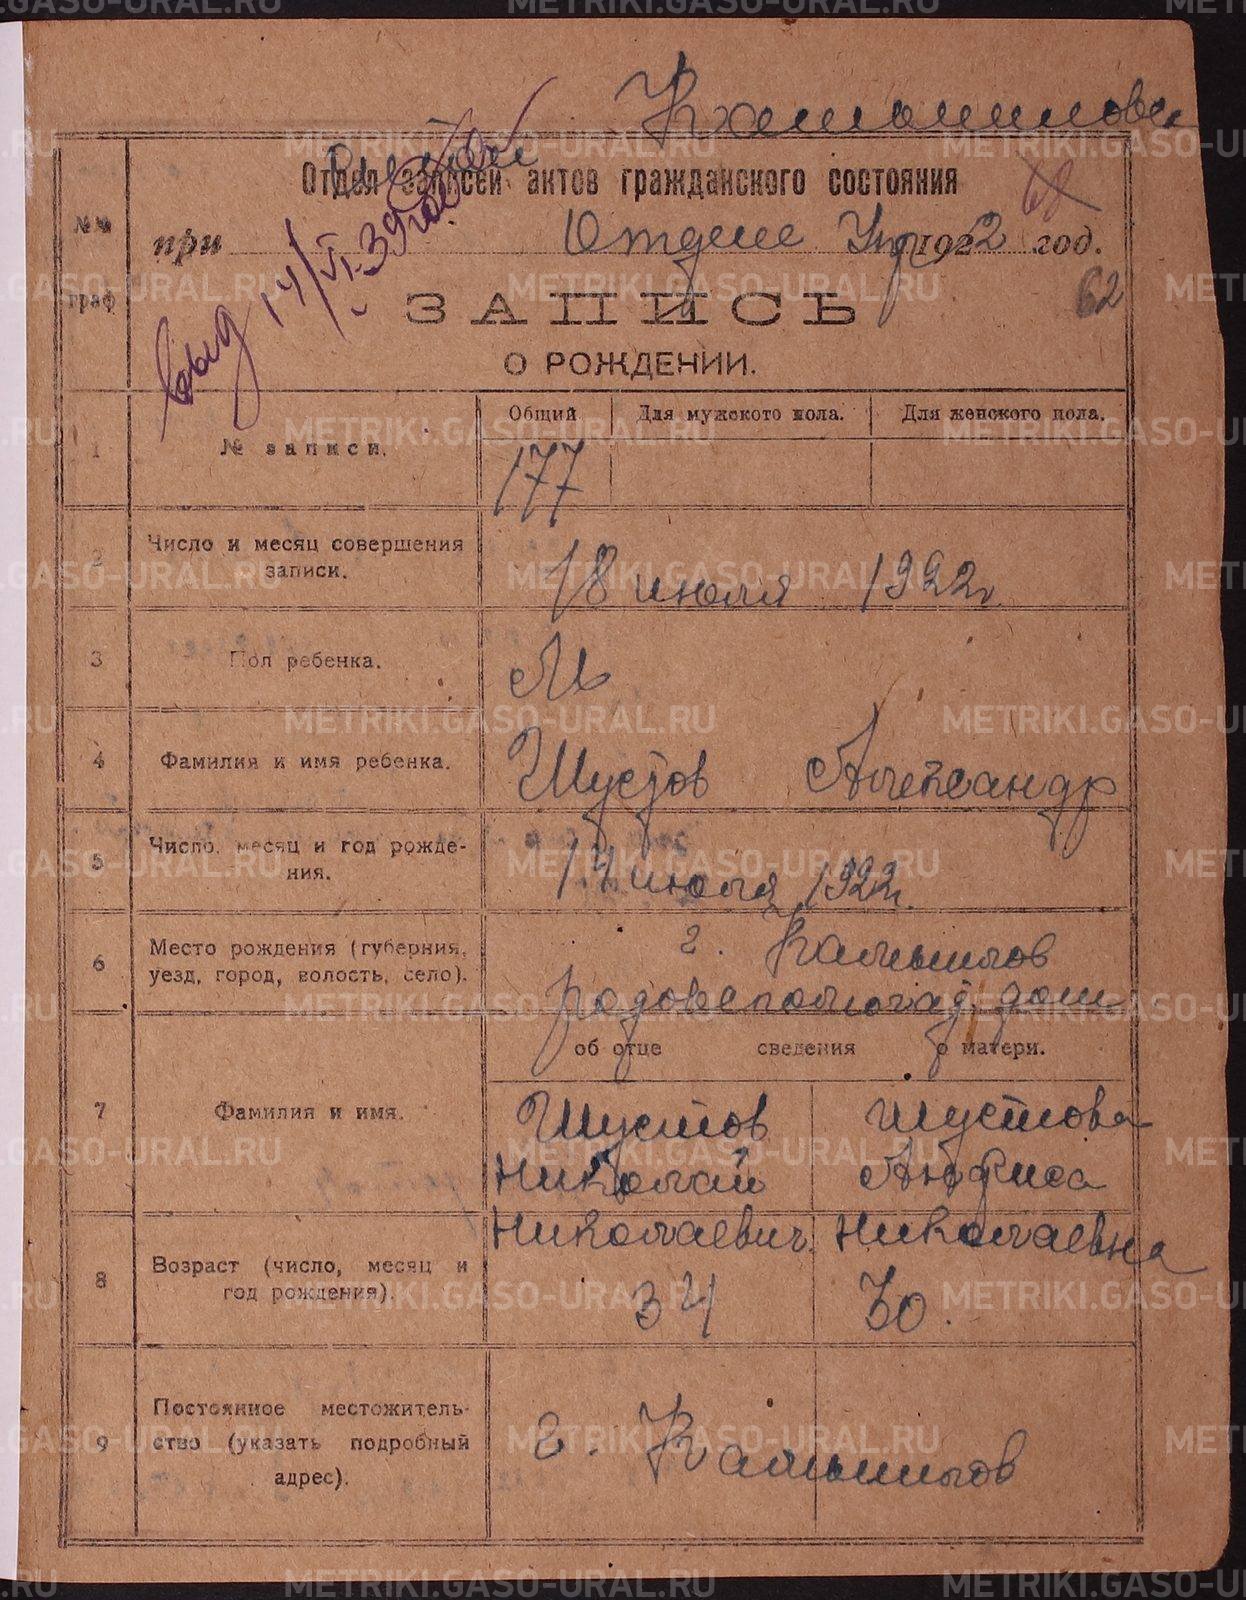 Отдел записей актов гражданского состояния
№№ граф
при Отделе Упр 1922 год.
62
ЗАПИСЬ
О РОЖДЕНИИ.
выд 14/VI-39
Общий Для мужского пола. Для женского пола.
1 № записи. 177
2 Число и месяц совершения записи. 18 июля 1922 г.
3 Пол ребенка. М
4 Фамилия и имя ребенка. Шустов Александр
5 Число, месяц и год рождения. 17 июля 1922 г.
6 Место рождения (губерния, г. Камышлов
уезд, город, волость, село). родовспомогад дом
об отце сведения о матери.
7 Фамилия и имя. Шустов Шустова
Николай Анфиса
Николаевич. Николаевна
8 Возраст (число, месяц и
год рождения). 34 30.
9 Постоянное местожитель-
ство (указать подробный г. Камышлов
адрес).
METRIKI.GASO-URAL.RU